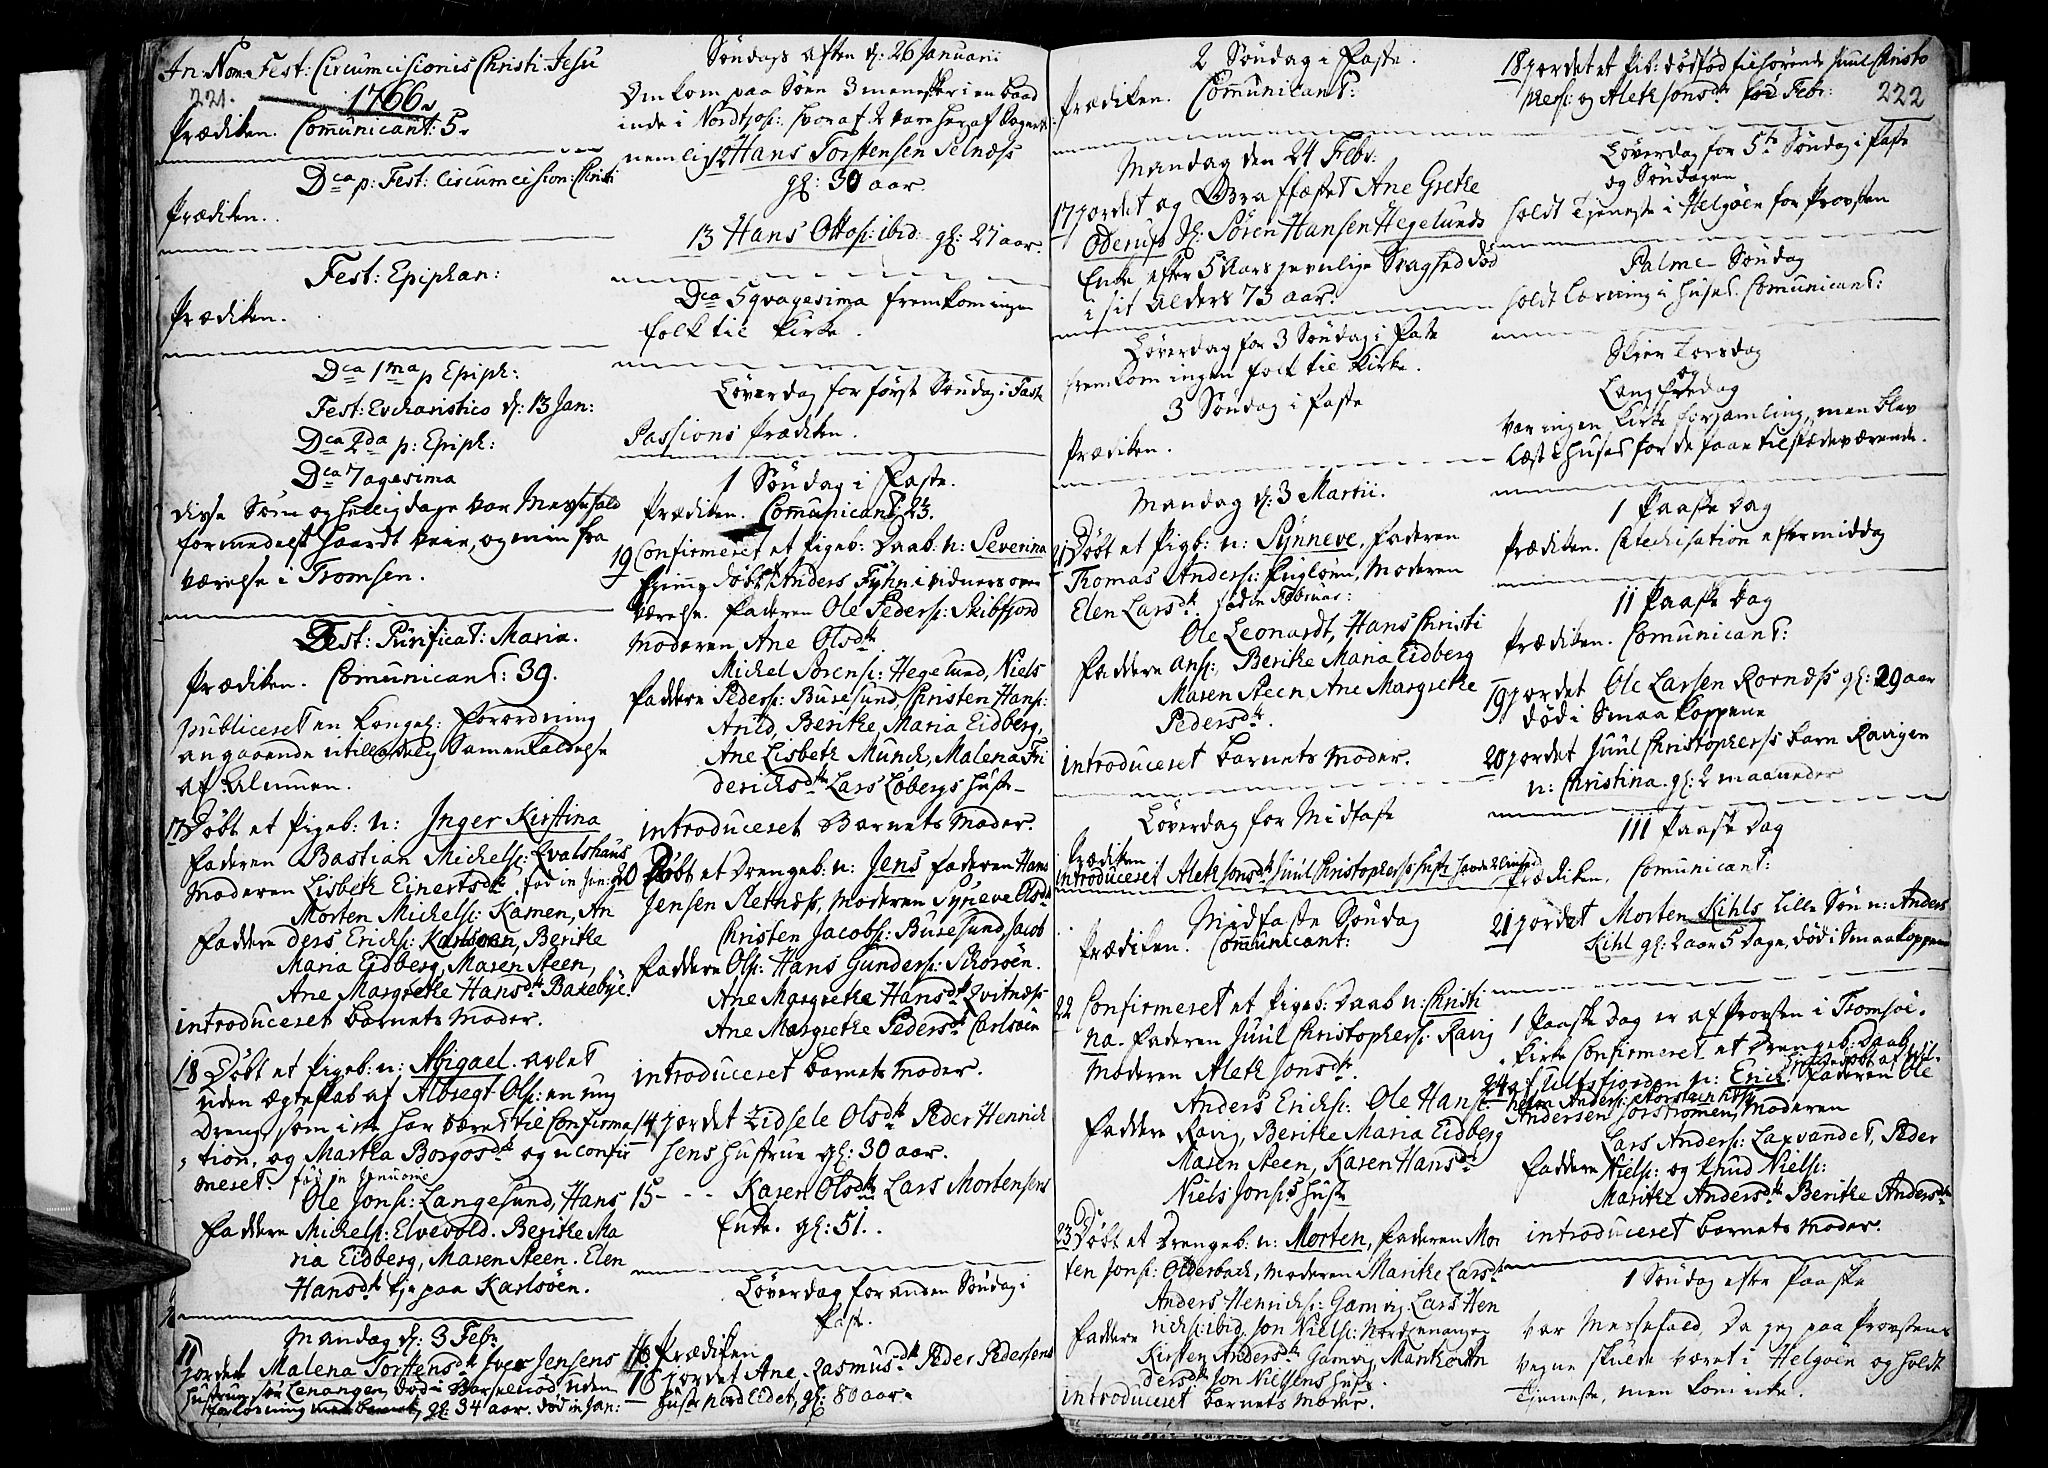 In: Nom: Fest: Circumcisionis Christi Jesu
221. 1766.
Prædiken. Com̅unicant: 5.
Dca p: Fest: Circumcision: Christi
Prædiken.
Fest: Epiphan:
Prædiken.
Dca 1ma p Epiph:
Fest: Eucharistico d: 13 Jan:
Dca 2da p: Epiph:
Dca 7agesima
disse Søn og hellig dage var Messefald
formedelst haardt veir, og min fra
værelse i Tromsen.
Fest: Purificat: Maria.
Prædiken. Com̅unicant: 39.
publiceret en kongel: forordning
angaaende utilladelig Samenkaldelse
af Almuen.
17 Døbt et Pigeb: n: Inger Kirstina
faderen Bastian Michels: Qvalshaus
Moderen Lisbeth Einertsdtr, fød in Jan:
Morten Michels: Kamen, An
Faddere ders Ericks: Karlsøen, Berithe
Maria Eidberg, Maren Steen,
Ane Margrethe Hansdtr Bakebye.
introduceret barnets Moder.
18 Døbt et Pigeb: n: Abigael. avlet
uden ægteskab af Albregt Ols: en ung
Dreng som icke har været til Confirma
tion, og Martha Borgosdtr og uconfir
meret. fød in Januario
Ole Jons: Langesund, Hans
Faddere Michels: Elvevold. Berithe Ma
ria Eidberg, Maren Steen. Elen
Hansdtr tje paa Karlsøen.
Mandag d: 3 Febr
11 jordet Malena Torstensdtr Iver Jensens
Hustrue Sør Lenangen, død i Barselnød uden
forløsning med barnet, gl: 34 aar. død in Jan:
Søndags aften d: 26 Januarii
Omkom paa Søen 3 mennesker i en baad
inde i Nordfios: hvoraf 2 vare her af
nemlig 12 Hans Torstensen Selnæss
gl: 30 aar.
13 Hans Ottos: ibid: gl: 27 aar.
Dca 5qvagesima fremkom ingen
folk til kirke.
Løverdag for først Søndag i Fast
Passions Prædiken.
1 Søndag i Faste.
Prædiken. Com̅unicant: 23.
19 Confirmeret et Pigeb: Daab. n: Severina
hjemme døbt Anders Fyhn i vidners over
værelse. faderen Ole Peders: Skibsfjord
Moderen Ane Olsdtr
Michel Sørens: Hegelund, Niels
Faddere Peders: Burøesund, Christen Hans:
Arild, Berithe Maria Eidberg,
Ane Lisbeth Munch, Malena Fri
derichsdtr Lars Lobergs Hustr.
introduceret Barnets Moder.
20 Døbt et Drengeb: n: Jens faderen Hans
Jensen Sletnæss, moderen Syneve Olsdtr
Christen Jacobs: Burøesund, Jacob
Faddere Ols: Hans Gunders: Skorøen.
Ane Margrethe Hansdtr Qvitnæs
Ane Margrethe Pedersdtr Carlsøen
introduceret barnets Moder.
14 jordet Zidsele Olsdtr Peder Henrich
sens hustrue gl: 30 aar.
15 - - - Karen Olsdtr Lars Mortensens
Enke. gl: 51.
Løverdag for anden Søndag i
Fast.
Prædiken
16 jordet Ane Rasmusdtr Peder Pedersens
hustr Nord Eidet, gl: 80 aar.
2 Søndag i Faste.
Prædiken. Com̅unicant:
Mandag den 24 Febr:
17 jordet og Graffæstet Ane Grethe
Oderup Sl: Søren Hansen Hegelunds
Enke efter 5 Aars sengelige Svaghed død
i sit alders 73 aar.
Løverdag for 3 Søndag i Faste
fremkom ingen folk til kirke.
3 Søndag i Faste
Prædiken.
Mandag d: 3 Martii.
21 Døbt et Pigb: n: Synneve. Faderen
Thomas Anders: Fugløen, Moderen
Elen Larsdtr fød in Februar:
Ole Leonardt, Hans Christi
Faddere ans:, Berithe Maria Eidberg
Maren Steen, Ane Margrethe
Pedersdtr.
introduceret barnets Moder.
Løverdag for Midfaste
Prædiken
introduceret Aleth Jonsdtr Juul Christophers: hustr
Midfaste Søndag
Prædiken. Com̅unicant:
22 Confirmeret et Pigeb: Daab n: Christi
na. Faderen Juul Christophers: Ravig
Moderen Aleth Jonsdtr.
Anders Ericks: Ole Hans:
Faddere Ravig, Berithe Maria Eidberg
Maren Steen, Karen Hansdtr
Niels Jons:s Hustr
23 Døbt et Drengeb: n: Morten, Faderen Mor
ten Jons: Olderbach, moderen Marithe Larsdtr
Anders Henrichs: Gamvig, Lars Hen
Faddere richs: ibid. Jon Niels: Nordlenangen
Kirsten Andersdtr Gamvig, Marithe An
dersdtr Jon Nielsens hustr
introduceret barnets Moder.
18 jordet et Pib: dødfød tilhørende Juul Christo
phers: og Aleth Jonsdtr fød Febr: 222
Løverdag for 5te Søndag i Faste
og Søndagen
holdt Tjeneste i Helgøen for Provsten
Palme Søndag
holdt læsning i huset. Com̅unicant:
Skier Torsdag
og
Lang fredag
var ingen kirke forsamling, men blev
læst i huset for de faae tilstædeværende.
1 Paaske Dag
Prædiken. Catechisation eftermiddag
II Paaske Dag
Prædiken. Com̅unicant:
19 jordet Ole Larsen Rornæss gl: 29 aar
død i Smaa kopperne
20 jordet Juul Christophers:s barn Ravigen
n: Christina. gl: 2 maaneder
III Paaske Dag
Prædiken. Com̅unicant:
21 jordet Morten Kihls lille Søn n: Anders
Kihl gl: 2 aar 5 Dage, død i Smaakopperne
1 Paaske Dag er af Provsten i Tromsøe
kirke Confirmeret et Drengeb: Daab
24 af Ulfsfjorden n: Erick. Faderen Ole
Andersen Sørstrømen, Moderen
Lars Anders: Laxvandet, Peder
Faddere Niels: og Knud Niels:
Marithe Andersdtr Berithe Andersdtr
introduceret barnets Moder.
1 Søndag efter Paaske
var Messefald, da jeg paa Provstens
vegne skulde været i Helgøen og holdt
Tjeneste, men kom icke.